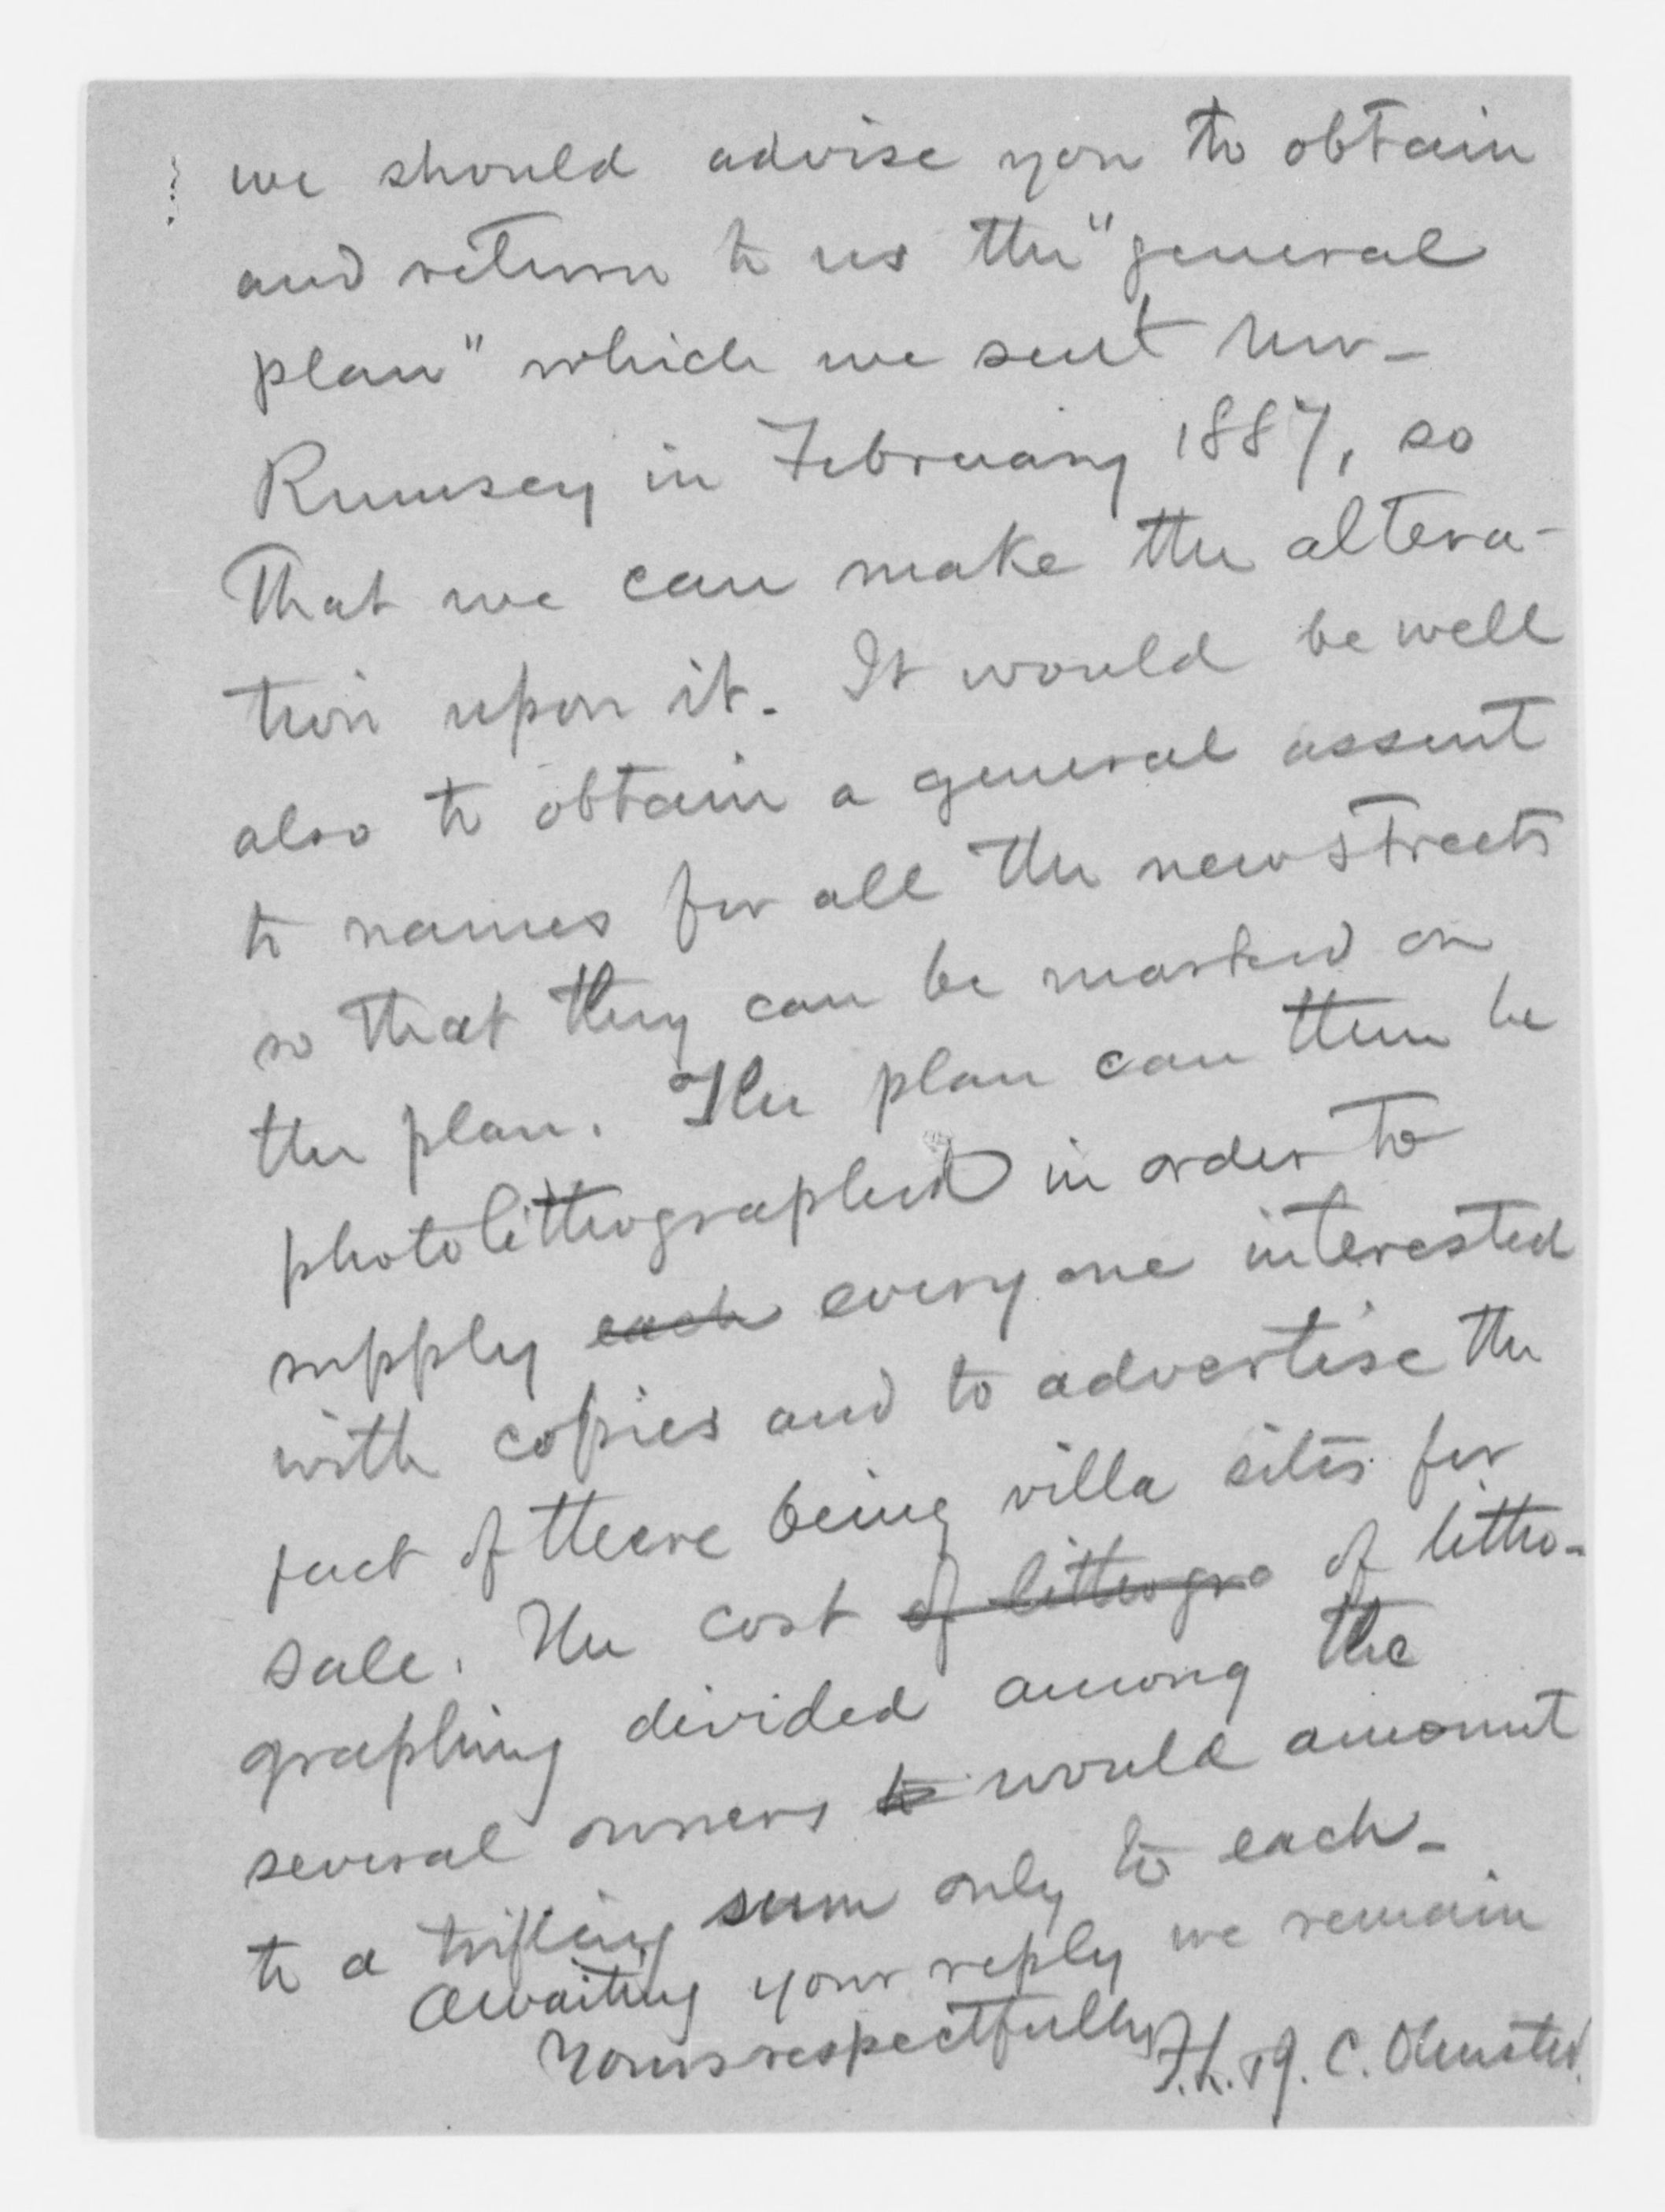 we should advise you to obtain
and return to us the "general
plan" which we sent Mr-
Rumsey in February 1887, so
that we can make the altera-
tion upon it. It would be well
also to obtain a general assent
to names for all the new streets
so that they can be marked on
the plan. The plan can then be
photolithographed in order to
supply each every one interested
with copies and to advertise the
fact of there being villa sites for
sale. The cost of lithogra of litho-
graphing divided among the
several owners to would amount
to a trifling sum only to each-
Awaiting your reply we remain
Yours respectfully F.L. & J. C. Olmsted.